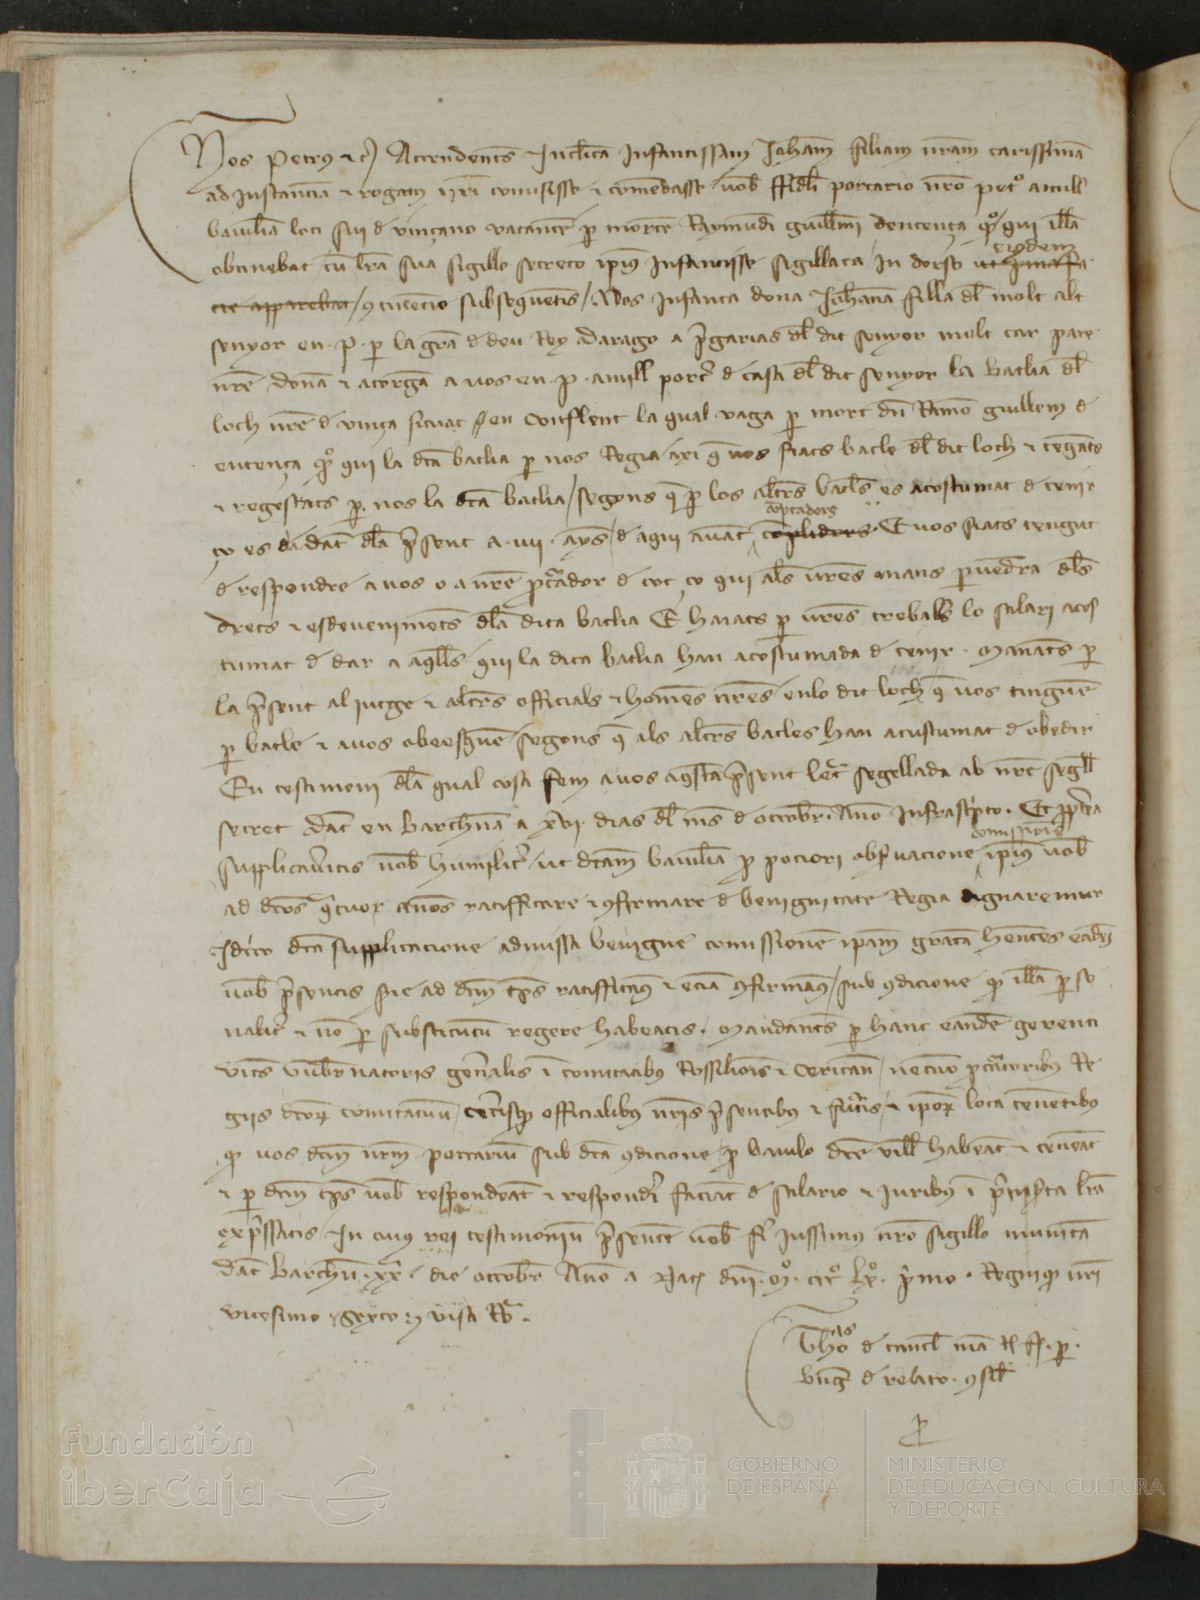 Nos Petrus etc Attendentes Inclitam Infantissam Johannam filiam nostram carissimam
ad instanciam et rogatum nostri comisisse et comendasse vobis fideli portario nostro Peto amill
baiuliam loci sui de vinçano vacantem per mortem Raymundi guillelmi dentença quondam qui illam
eiusdem
obtinebat cum littera sua sigillo secreto ipsius Infantisse sigillata in dorso ut prima fa
cie apparebat / continencie subsequentis / Nos Infanta dona Johana filla del molt alt
senyor en .P. per la gracia de deu Rey darago a pregarias del dit senyor molt car pare
nostre donam et atorgam a vos en .P. amill porter de casa del dit senyor la batlia del
loch nostre de vinça situat en conflent la qual vaga per mort den Ramon guillem d
entença quondam qui la dita batlia per nos Regia axi que vos siats batle del dit loch et tengats
et regescats per nos la dita batlia / segons que per los altres batles es acostumat de tenir
comptadors
ço es da dat dela present a .IIII. ayns / de aqui avant complidors. E vos siats tengut
de respondre a nos o a nostre procurador de tot ço qui als vostres mans pervendra dels
drets et esdeveniments dela dita batlia E haiats per vostres treballs lo salari acos
tumat de dar a aquells qui la dita batlia han acostumada de tenir. Manants per
la present al jutge et altres officials et homens nostres en lo dit loch que vos tinguen
per batle et a vos obeesquen segons que als altres batles han acustumat de obedir
En testimoni dela qual cosa fem a vos aquesta present letra segellada ab nostre segell
secret dat en Barchelona a XVI. dias del mes de octobre. Anno infrascripto. Et propterea
comissionis
supplicaveritis nobis humiliter / ut dictam baiuliam pro pociori observacione ipsius vobis
ad dictos quatuor annos ratifficare et confirmare de benignitate Regia dignaremur
Idcirco dicta supplicacione admissa benigne comissionem ipsam gratam habentes eandem
vobis presentis serie ad dictum tempus ratifficamus et eciam confirmamus / sub condicione quod illam perso
naliter et non per substitutum regere habeatis. Mandantes per hanc eandem gerenti
vices Gubernatoris generalis in comitatibus Rossilionis et Ceritanie / necnon procuratoribus Re
giis dictorum comitatuum / ceterisque officialibus nostris presentibus et futuris / et ipsorum loca tenentibus
quod vos dictum nostrum portarium sub dicta condicione / pro baiulo dicte ville habeant et teneant
et per dictum tempus vobis respondeant et responderi faciant de salario et iuribus in preinserta littera
expressatis. In cuius rei testimonium presentem vobis fieri iussimus nostro sigillo munitam
Dat Barchinone .XXa. die octobris Anno a Nat. domini .Mo. CCCo. LXo. primo. Regnique nostri
vicesimo sexto visa Ra.
Thomas de canell mandato
de relato. consil
Fundación
iberCaja
GOBIERNO
DE ESPAÑA
MINISTERIO
DE EDUCACIÓN, CULTURA
Y DEPORTE